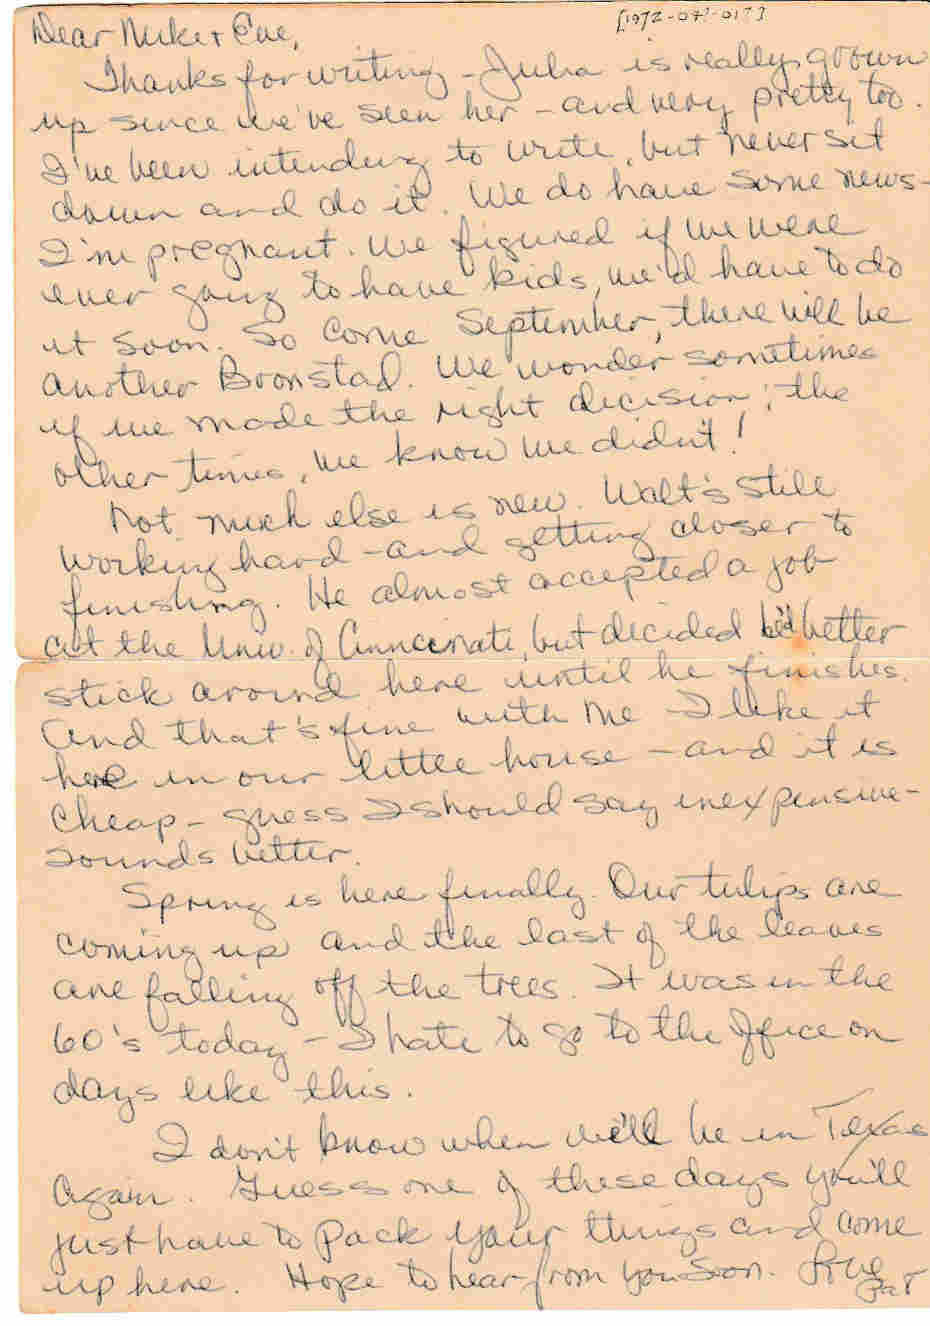 [1972-04?-01?]
Dear Mike + Eve,
Thanks for writing - Julia is really grown
up since we've seen her - and very pretty too.
I've been intending to write, but never sit
down and do it. We do have some news -
I'm pregnant. We figured if we were
ever going to have kids, we'd have to do
it soon. So come September, there will be
another Bronstad. We wonder sometimes
if we made the right decision; the
other times, we know we didn't!
Not much else is new. Walt's still
working hard - and getting closer to
finishing. He almost accepted a job
at the Univ. of Cinncinati, but decided he'd better
stick around here until he finishes.
And that's fine with me I like it
here in our little house - and it is
cheap - guess I should say inexpensive -
sounds better.
Spring is here finally. Our tulips are
coming up and the last of the leaves
are falling off the trees. It was in the
60's today - I hate to go to the office on
days like this.
I don't know when we'll be in Texas
again. Guess one of these days you'll
just have to pack your things and come
up here. Hope to hear from you soon. Love
Pat